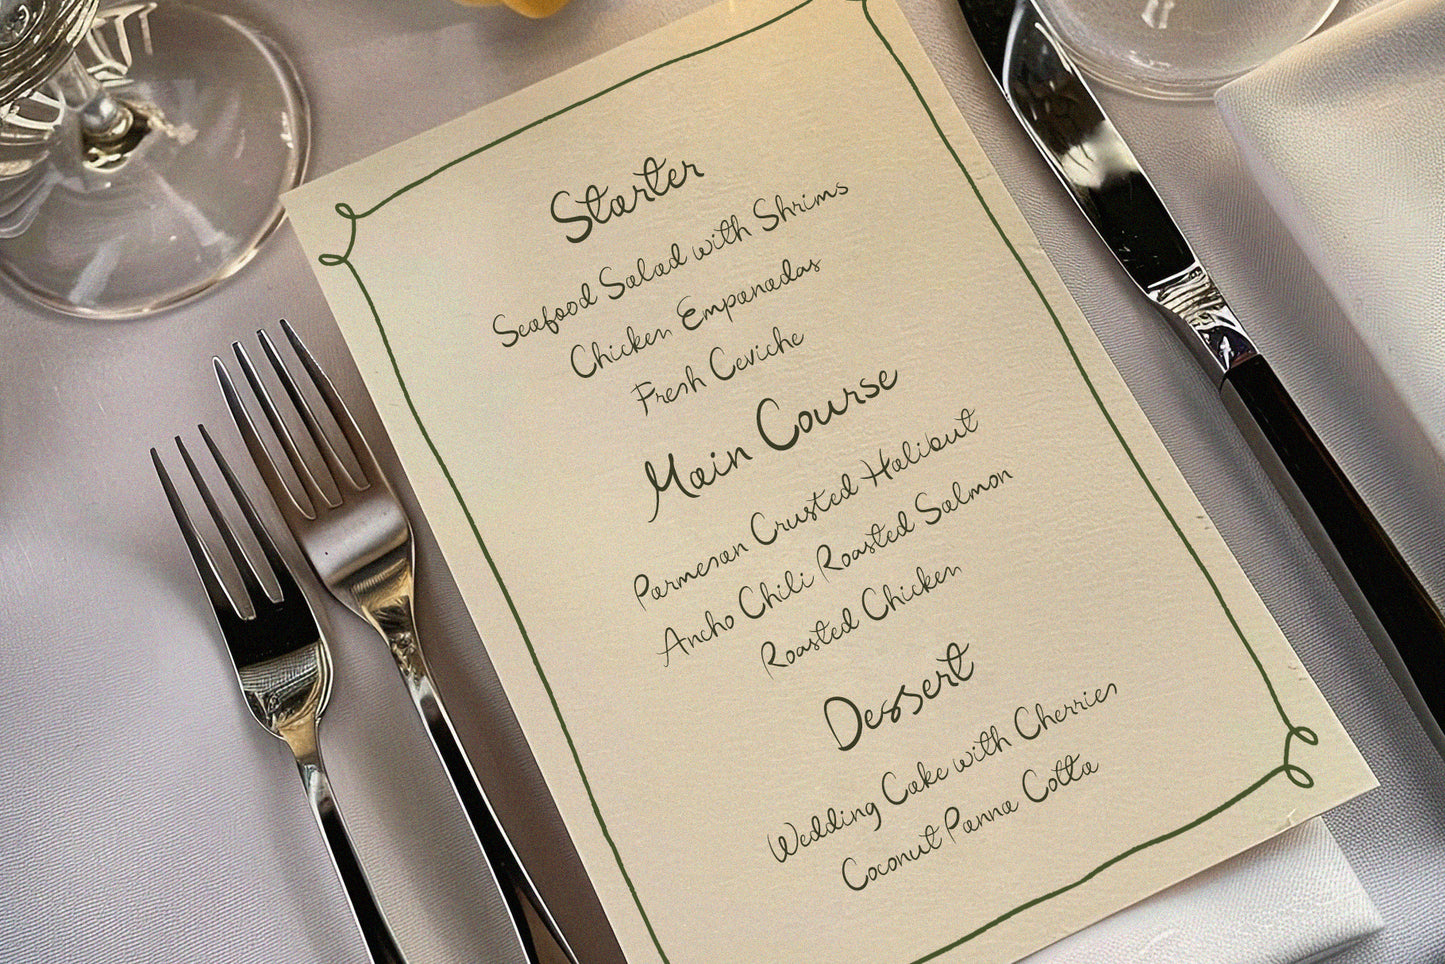 Starter
Seafood Salad with Shrims
Chicken Empanadas
Fresh Ceviche
Main Course
Parmesan Crusted Halibut
Ancho Chili Roasted Salmon
Roasted Chicken
Dessert
Wedding Cake with Cherries
Coconut Panna Cotta